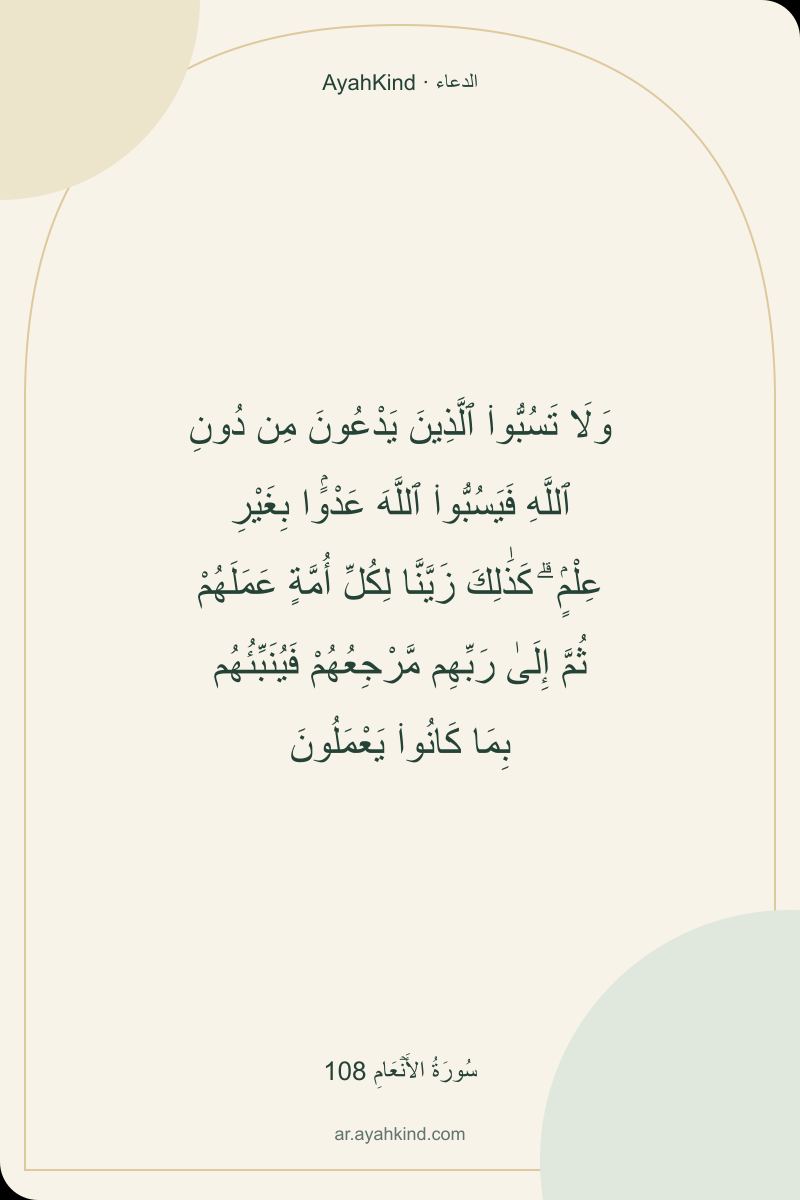 AyahKind · الدعاء
وَلَا تَسُبُّوا۟ ٱلَّذِينَ يَدْعُونَ مِن دُونِ
ٱللَّهِ فَيَسُبُّوا۟ ٱللَّهَ عَدْوًۢا بِغَيْرِ
عِلْمٍۢ ۗ كَذَٰلِكَ زَيَّنَّا لِكُلِّ أُمَّةٍ عَمَلَهُمْ
ثُمَّ إِلَىٰ رَبِّهِم مَّرْجِعُهُمْ فَيُنَبِّئُهُم
بِمَا كَانُوا۟ يَعْمَلُونَ
سُورَةُ الأَنۡعَامِ 108
ar.ayahkind.com